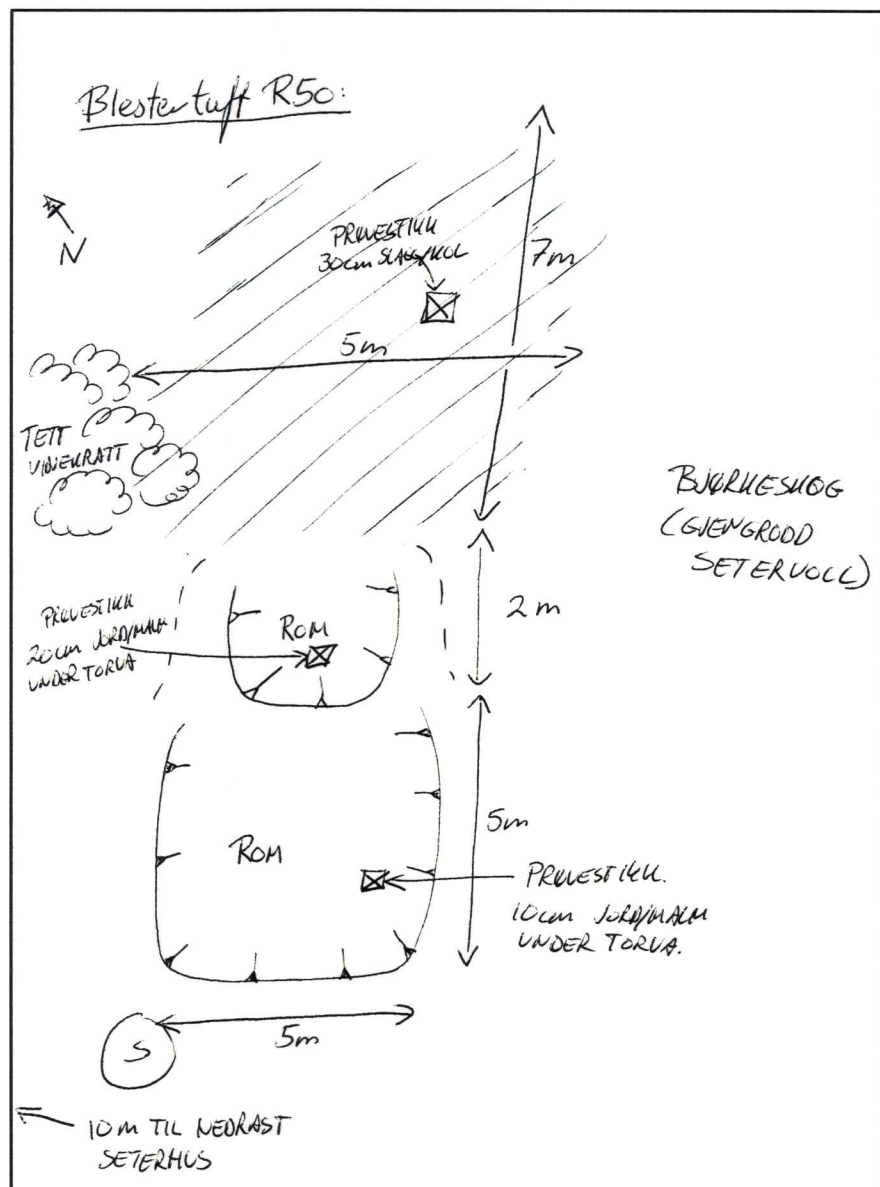 Blestertuft R50:
N
PRØVESTIKK
30cm SLAGG/KOL
7m
5m
TETT
VIDJEKRATT
BJØRKESKOG
(GJENGRODD
SETERVOLL)
PRØVESTIKK
20cm JORD/MALM
UNDER TORVA
ROM
2m
ROM
5m
PRØVESTIKK.
10cm JORD/MALM
UNDER TORVA.
5m
S
10 M TIL NEDRAST
SETERHUS